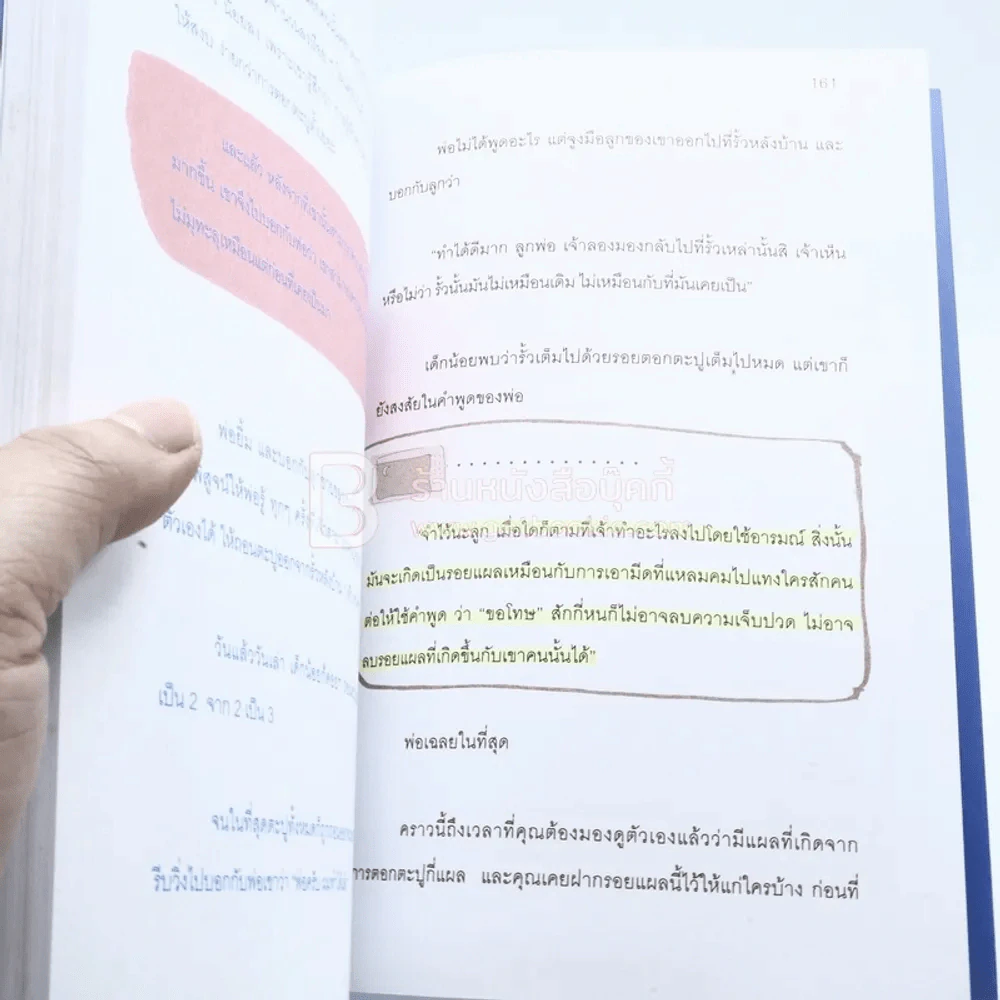 ให้สงบ ง่ายกว่าการตอกตะปูตั้งเยอะ
และแล้ว หลังจากที่เขา
มากขึ้น เขาจึงไปบอกกับพ่อว่า
ไม่มุทะลุเหมือนแต่ก่อนที่เคยเป็นมา
พ่อยิ้ม และบอกกับ
พิสูจน์ให้พ่อรู้ ทุกๆ ครั้ง
ตัวเองได้ ให้ถอนตะปูออกจากรั้วหลังบ้าน
วันแล้ววันเล่า เด็กน้อยก็
เป็น 2 จาก 2 เป็น 3
จนในที่สุดตะปูทั้งหมดก็ถูกถอน
รีบวิ่งไปบอกกับพ่อเขาว่า
161
พ่อไม่ได้พูดอะไร แต่จูงมือลูกของเขาออกไปที่รั้วหลังบ้าน และ
บอกกับลูกว่า
“ทำได้ดีมาก ลูกพ่อ เจ้าลองมองกลับไปที่รั้วเหล่านั้นสิ เจ้าเห็น
หรือไม่ว่า รั้วนั้นมันไม่เหมือนเดิม ไม่เหมือนกับที่มันเคยเป็น”
เด็กน้อยพบว่ารั้วเต็มไปด้วยรอยตอกตะปูเต็มไปหมด แต่เขาก็
ยังสงสัยในคำพูดของพ่อ
B ร้านหนังสือบุ๊คกี้
จำไว้นะลูก เมื่อใดก็ตามที่เจ้าทำอะไรลงไปโดยใช้อารมณ์ สิ่งนั้น
มันจะเกิดเป็นรอยแผลเหมือนกับการเอามีดที่แหลมคมไปแทงใครสักคน
ต่อให้ใช้คำพูด ว่า “ขอโทษ” สักกี่หนก็ไม่อาจลบความเจ็บปวด ไม่อาจ
ลบรอยแผลที่เกิดขึ้นกับเขาคนนั้นได้”
พ่อเฉลยในที่สุด
คราวนี้ถึงเวลาที่คุณต้องมองดูตัวเองแล้วว่ามีแผลที่เกิดจาก
การตอกตะปูกี่แผล และคุณเคยฝากรอยแผลนี้ไว้ให้แก่ใครบ้าง ก่อนที่